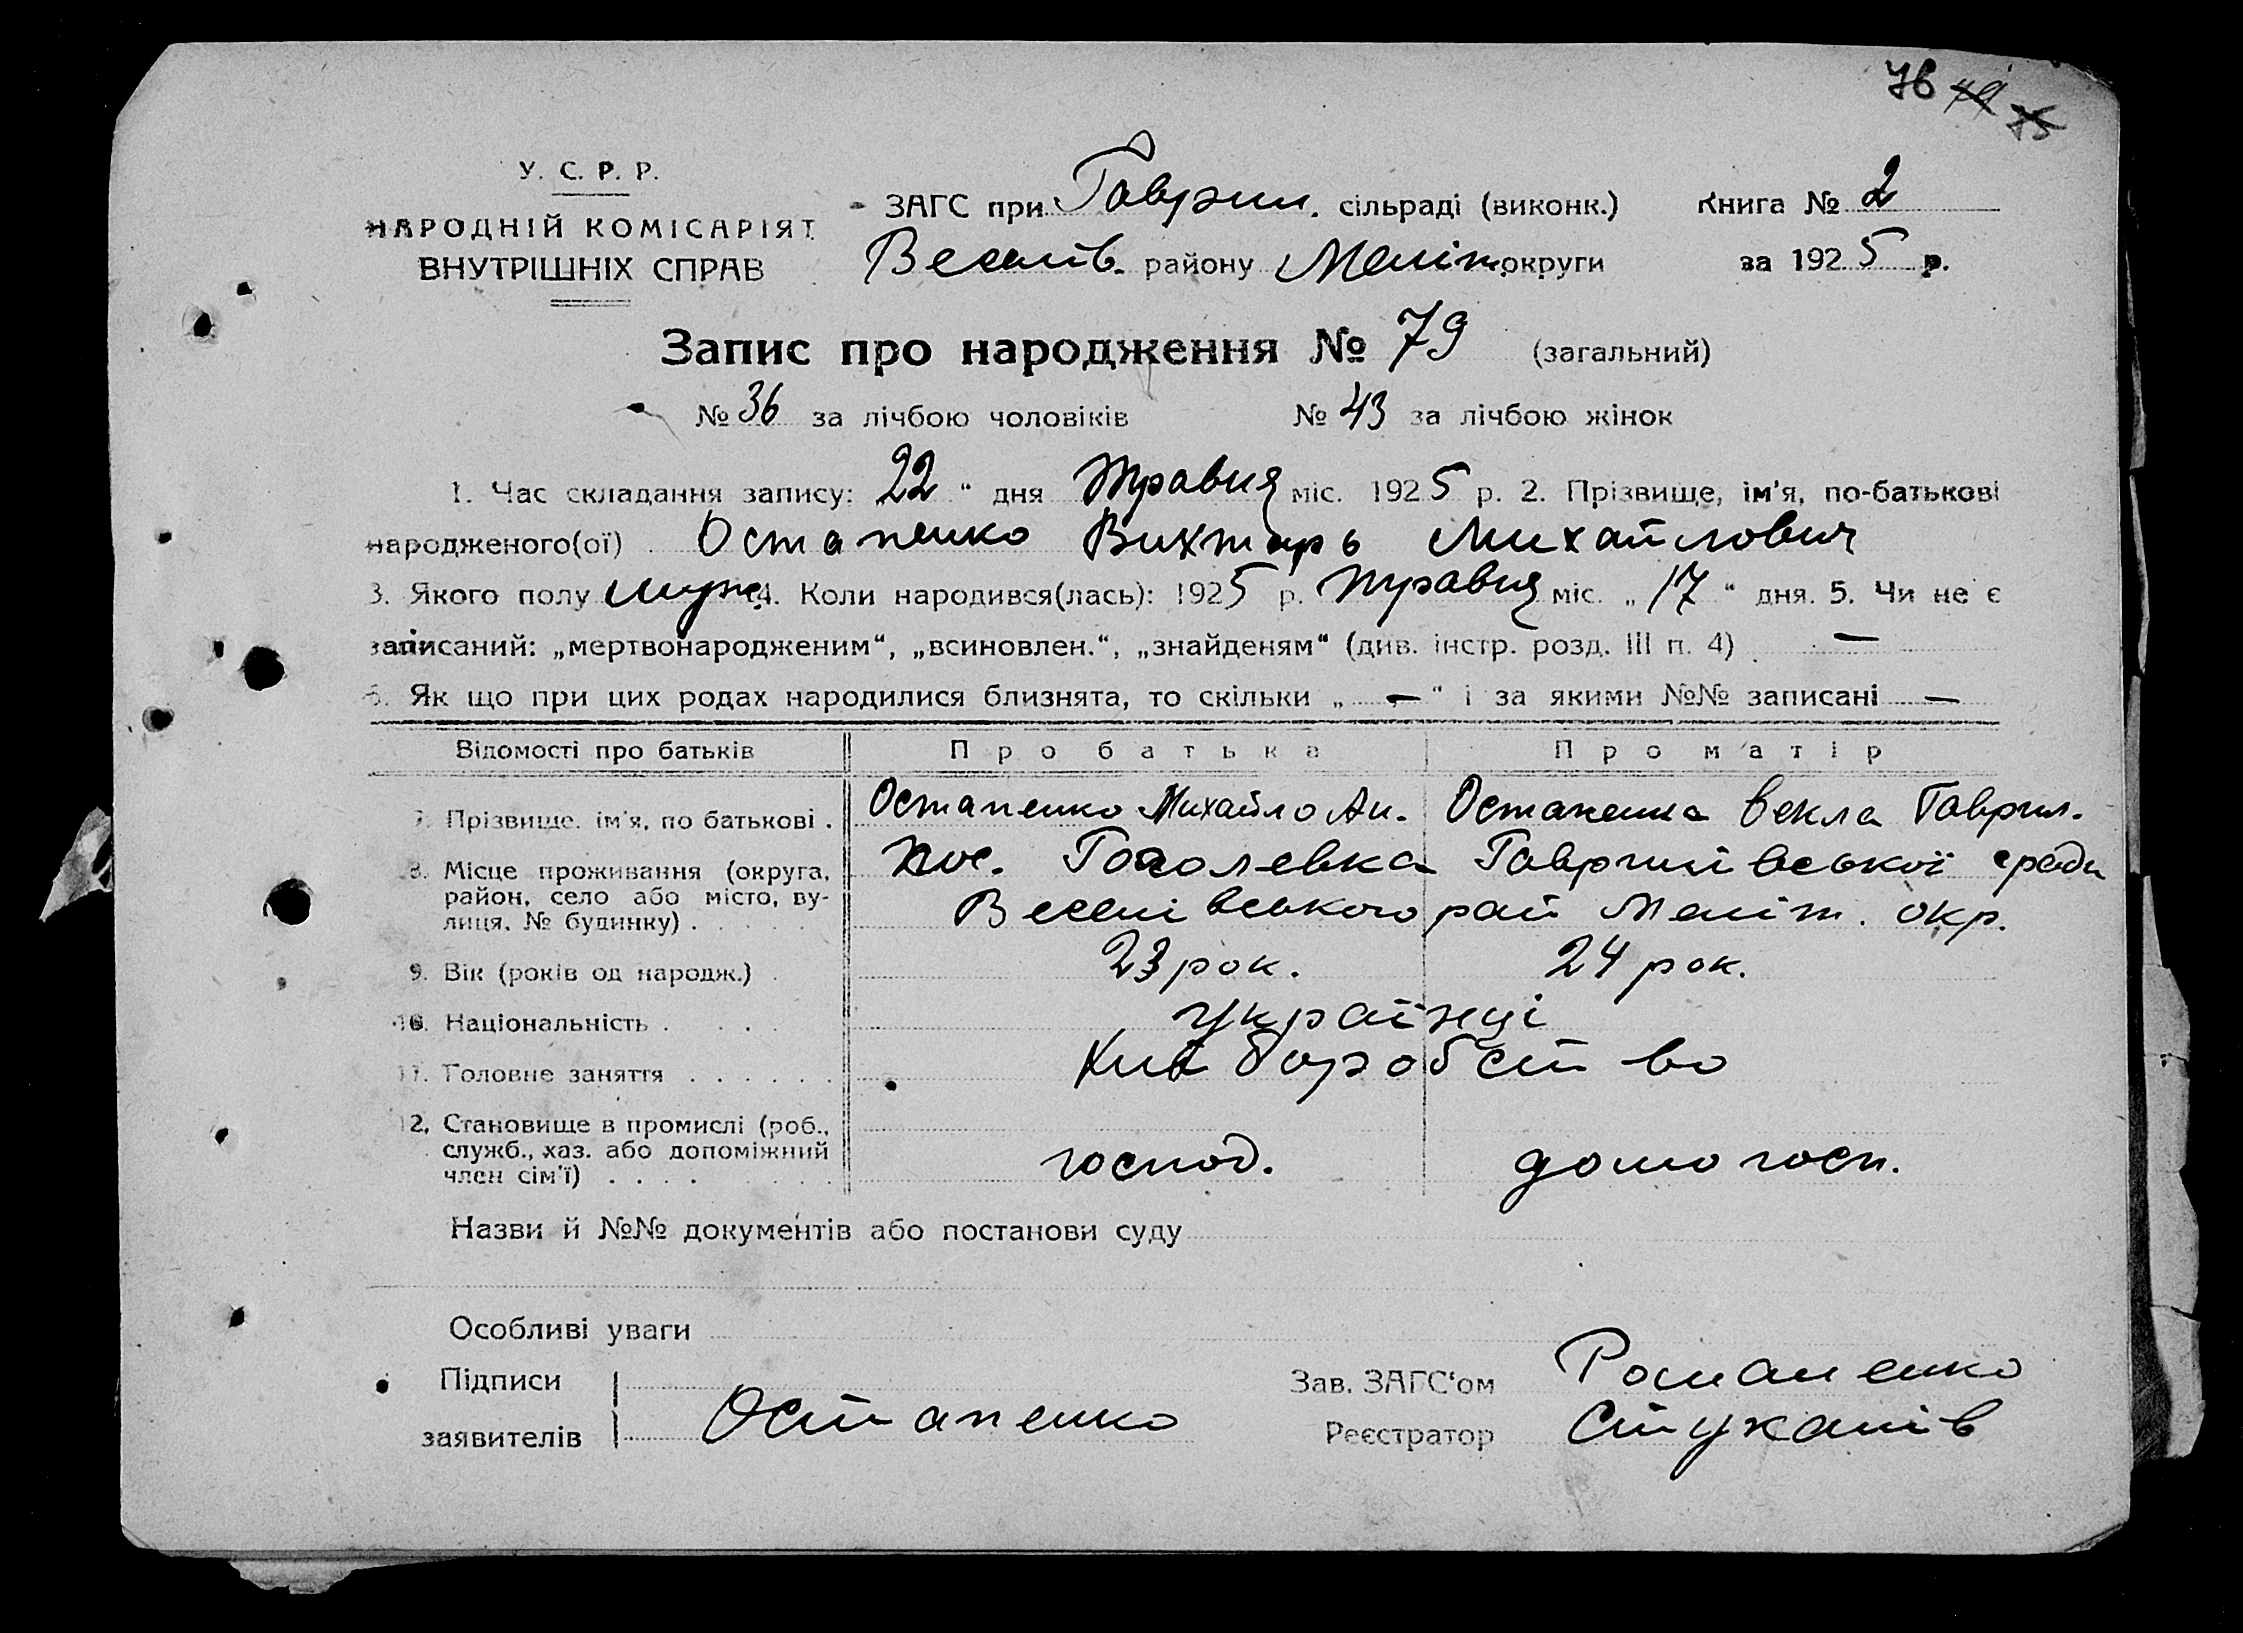 76 49 75
У. С. Р. Р.
НАРОДНІЙ КОМІСАРІЯТ
ВНУТРІШНІХ СПРАВ
ЗАГС при Гаврил. сільраді (виконк.) Книга № 2
Веселів. району Меліт. округи за 1925 р.
Запис про народження № 79 (загальний)
№ 36 за лічбою чоловіків № 43 за лічбою жінок
1. Час складання запису: „22“ дня Травня міс. 1925 р. 2. Прізвище, ім'я, по-батькові
народженого(ої) Остапенко Вихтарь Михайлович
3. Якого полу муж. 4. Коли народився(лась): 1925 р. травня міс. „17“ дня. 5. Чи не є
записаний: „мертвонародженим“, „всиновлен.“, „знайденям“ (див. інстр. розд. III п. 4) —
6. Як що при цих родах народилися близнята, то скільки „—“ і за якими №№ записані —
Відомості про батьків Про батька Про матір
7. Прізвище, ім'я, по батькові . Остапенко Михайло Ан. Остапенка Векла Гаврил.
8. Місце проживання (округа, район, село або місто, вулиця, № будинку) . . . . . пос. Гоголевка Гаврилівської сради
Веселівського рай Меліт. окр.
9. Вік (років од народж.) . 23 рок. 24 рок.
10. Національність . . . . українці
11. Головне заняття . . . . . . Хліборобство
12. Становище в промислі (роб., служб., хаз. або допоміжний член сім'ї) . . . . господ. домогосп.
Назви й №№ документів або постанови суду
Особливі уваги
Підписи Зав. ЗАГС'ом Романенко
заявителів Остапенко Реєстратор Стукалів